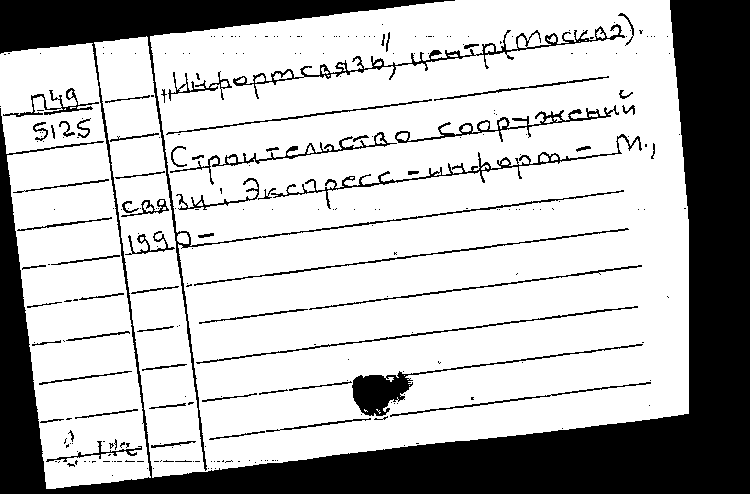 П49
5125
„Информсвязь", центр (Москва).
Строительство сооружений
связи : Экспресс-информ. - М.,
1990-